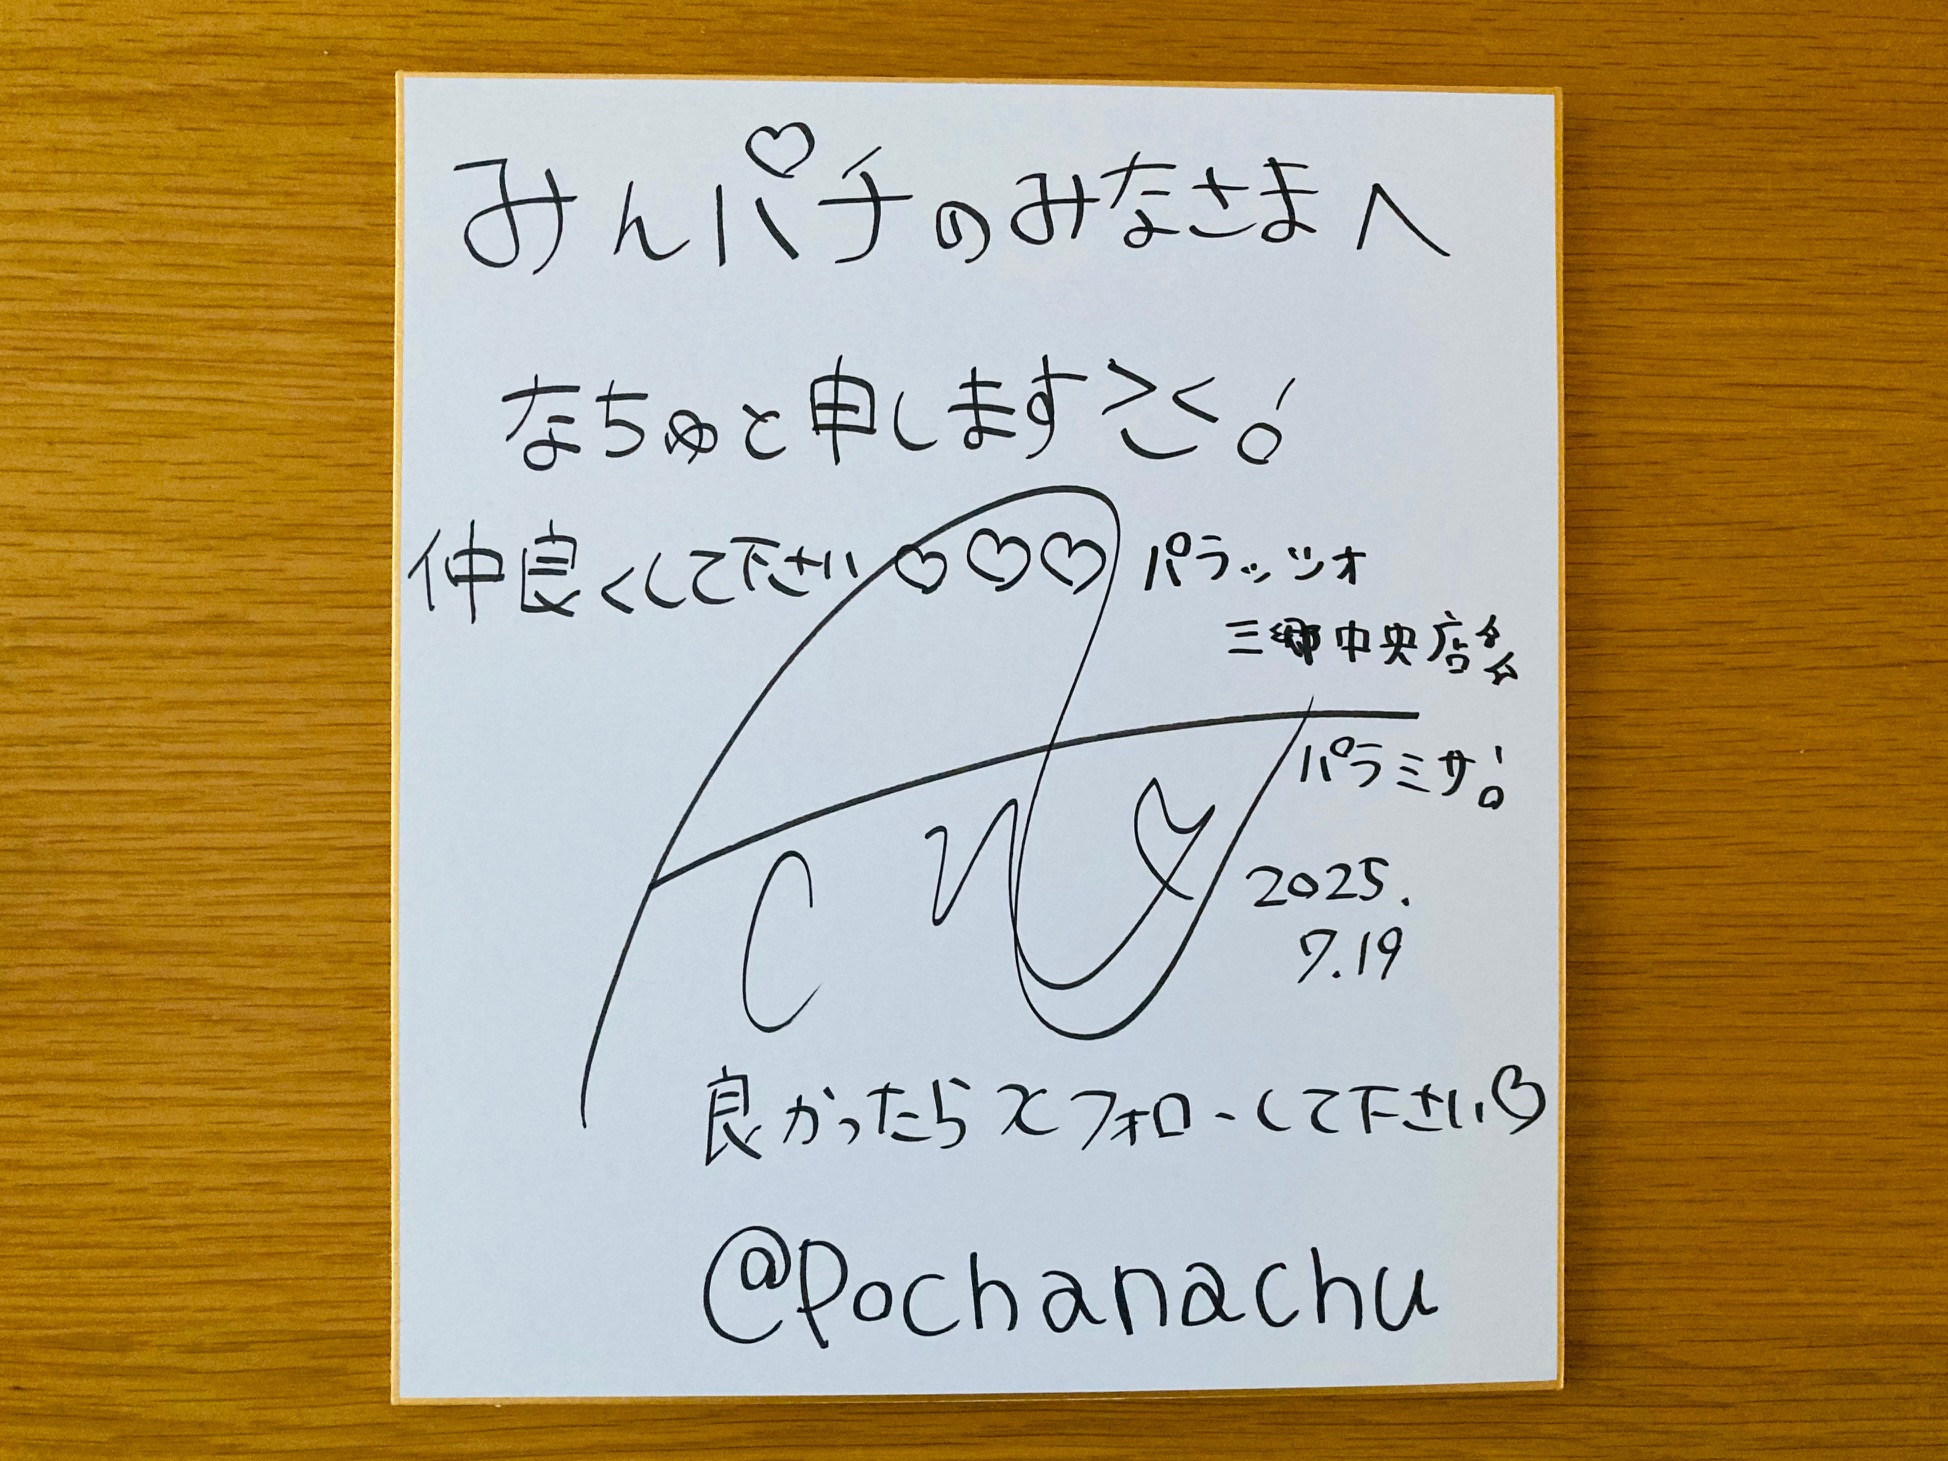 みんパチのみなさまへ
なちゅと申します><!
仲良くして下さい♡♡♡
パラッツォ
三郷中央店☆☆
パラミサ!
2025.
7.19
良かったらXフォローして下さい♡
@Pochanachu